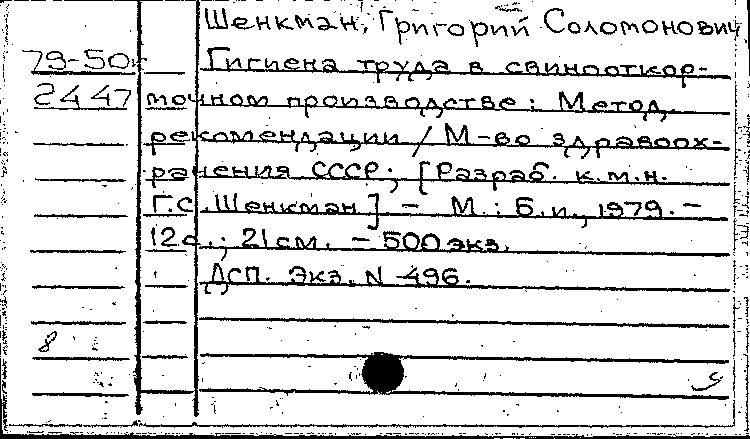 Шенкман, Григорий Соломонович
79-50к Гигиена труда в свинооткор-
2447 мочном производстве: Метод.
рекомендации / М-во здравоох-
ранения СССР; [Разраб. к.м.н.
Г.С. Шенкман] - М.: Б.и., 1979. -
12с.; 21см. - 500 экз.
ДСП. Экз. N 496.
8